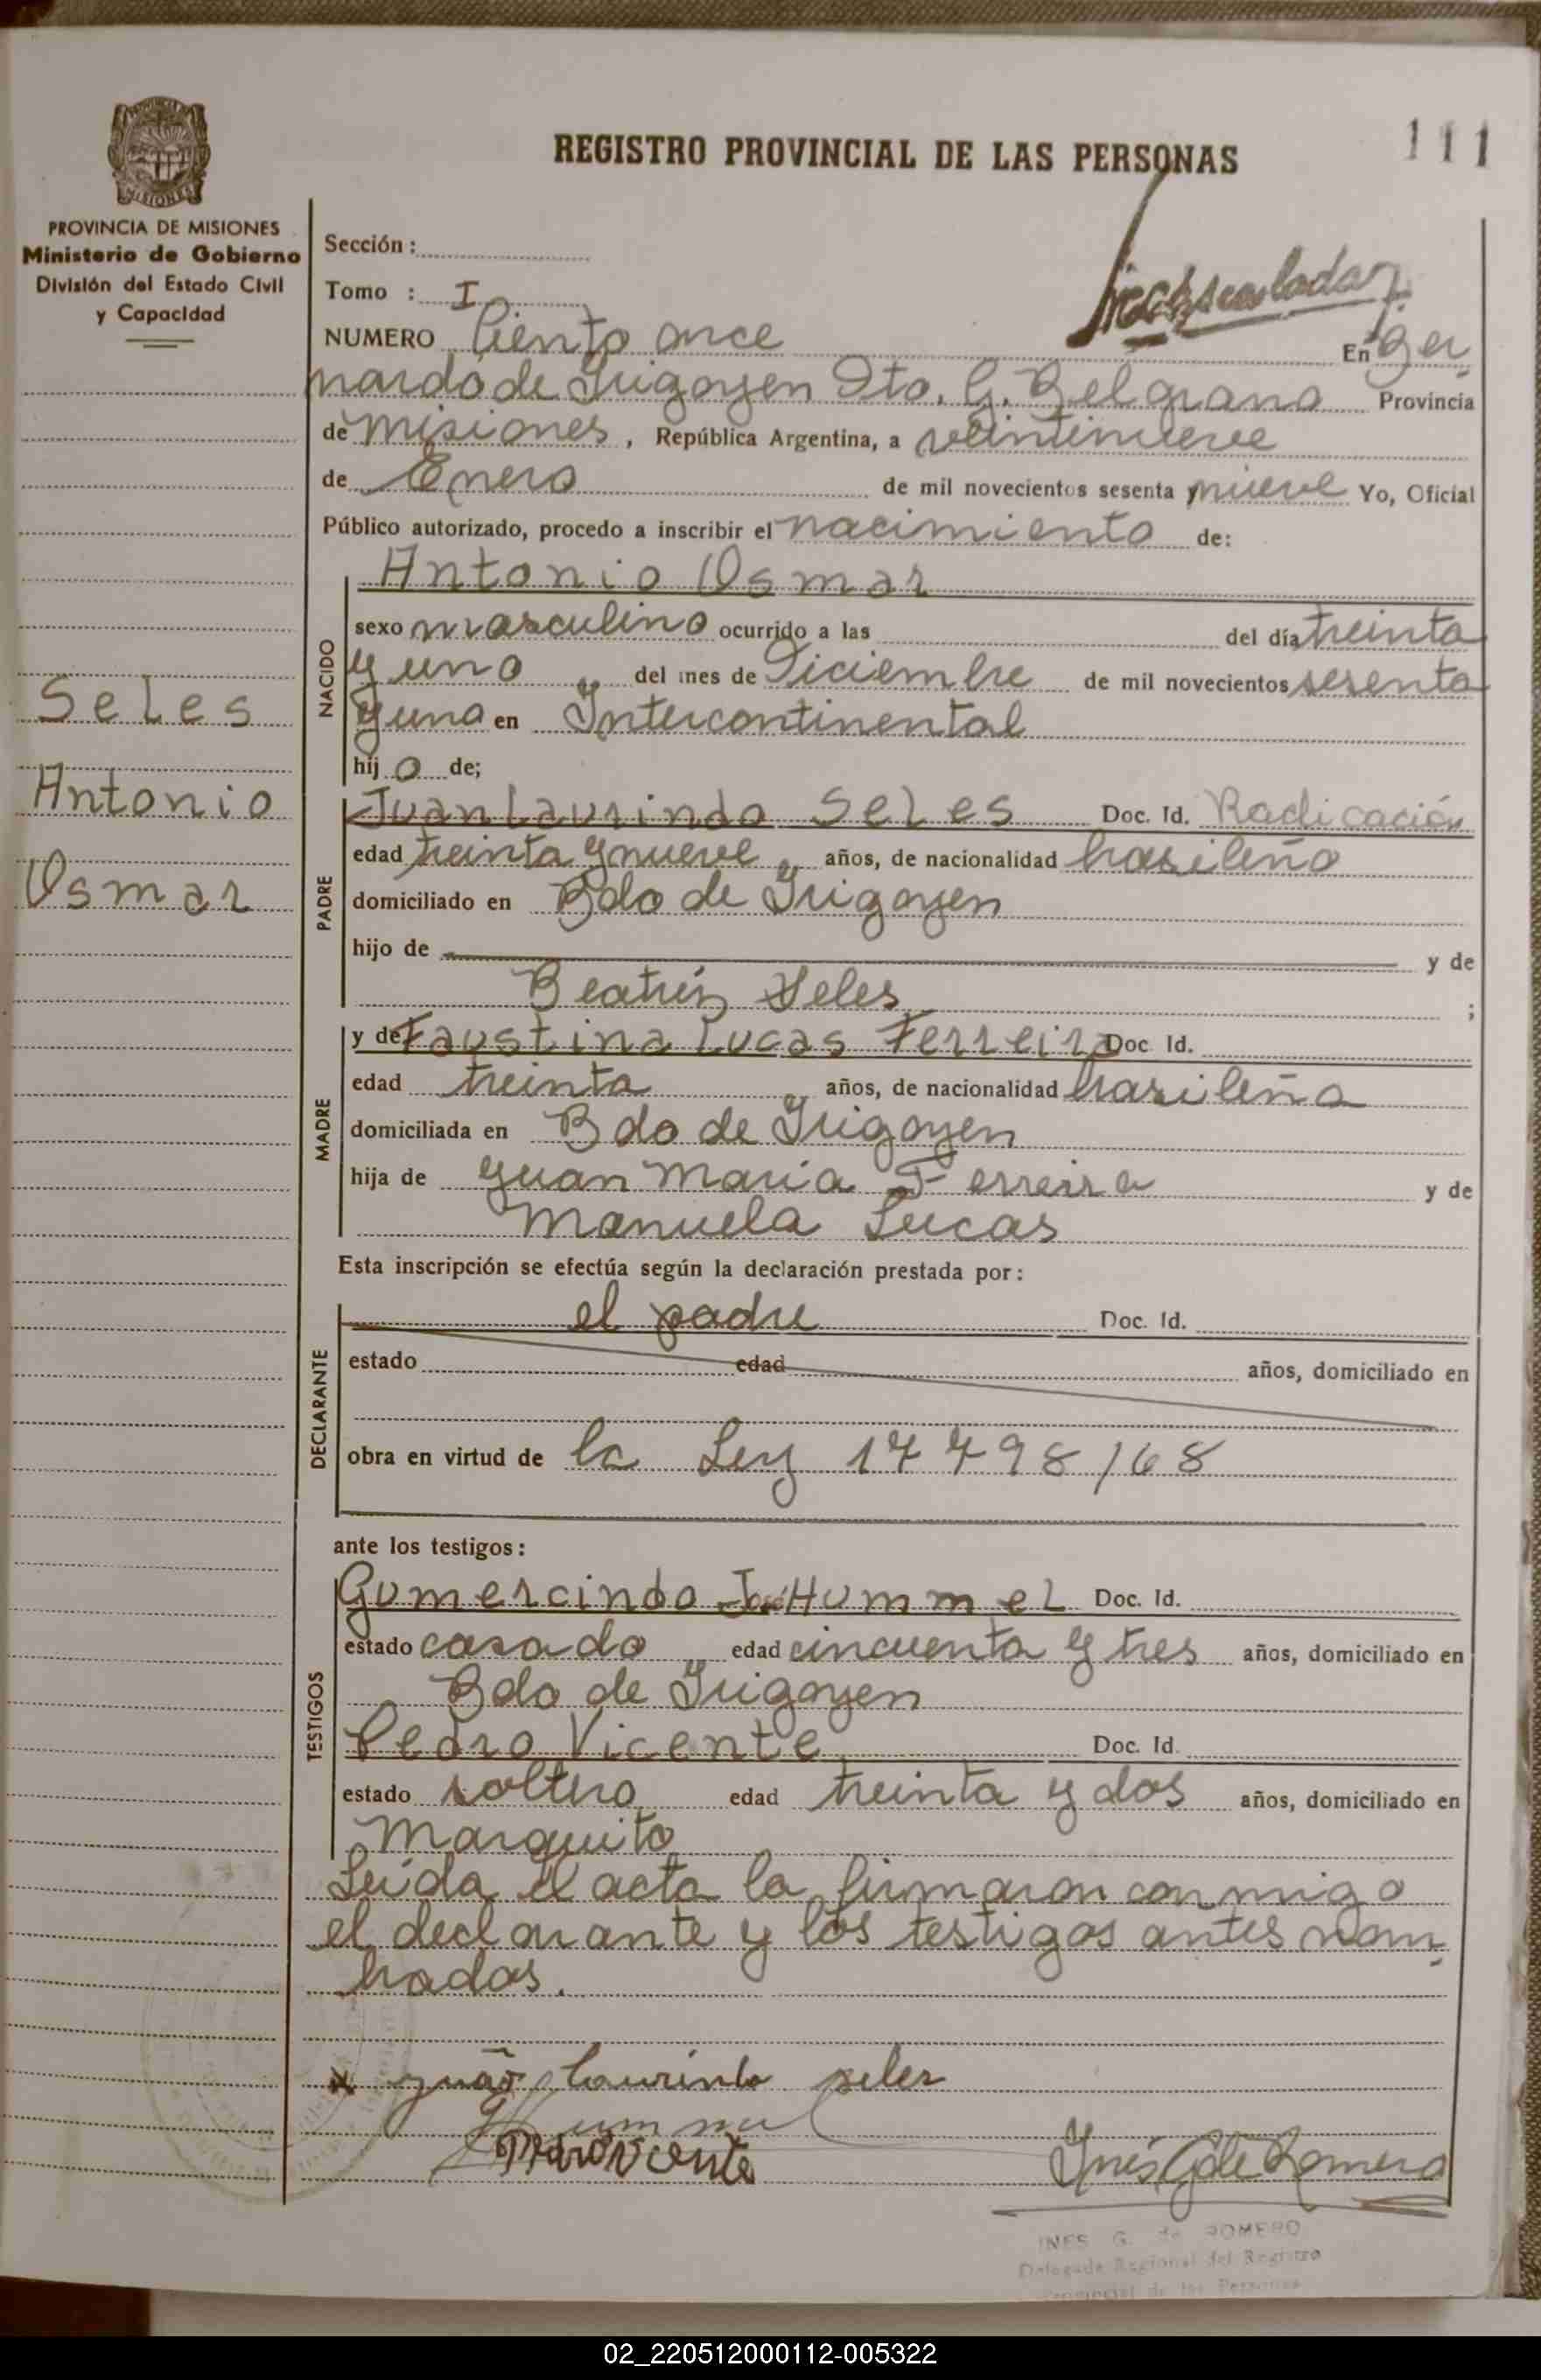 REGISTRO PROVINCIAL DE LAS PERSONAS
111
PROVINCIA DE MISIONES
Ministerio de Gobierno
División del Estado Civil
y Capacidad
Sección:
Tomo : I
NUMERO Ciento once En Ber
nardo de Irigoyen Dto. G. Belgrano Provincia
de Misiones, República Argentina, a veintinueve
de Enero de mil novecientos sesenta y nueve Yo, Oficial
Público autorizado, procedo a inscribir el nacimiento de:
Antonio Osmar
NACIDO
sexo masculino ocurrido a las del día treinta
y uno del mes de Diciembre de mil novecientos sesenta
y uno en Intercontinental
hij o de;
Seles
Antonio
Osmar
PADRE
Juan Laurindo Seles Doc. Id. Radicación
edad treinta y nueve años, de nacionalidad brasileño
domiciliado en Bdo de Irigoyen
hijo de y de
Beatriz Seles ;
MADRE
y de Faustina Lucas Ferreira Doc Id.
edad treinta años, de nacionalidad brasileña
domiciliada en Bdo de Irigoyen
hija de Juan Maria Ferreira y de
Manuela Lucas
Esta inscripción se efectúa según la declaración prestada por:
DECLARANTE
el padre Doc. Id.
estado edad años, domiciliado en
obra en virtud de la Ley 17498/68
ante los testigos:
TESTIGOS
Gumercindo José Hummel Doc. Id.
estado casado edad cincuenta y tres años, domiciliado en
Bdo de Irigoyen
Pedro Vicente Doc. Id.
estado soltero edad treinta y dos años, domiciliado en
Marquito
Leida el acta la firmaron conmigo
el declarante y los testigos antes nom
brados.
x juão laurindo seles
Inés G de Romero
INES G. de ROMERO
Delegada Regional del Registro
Provincial de las Personas
02_220512000112-005322